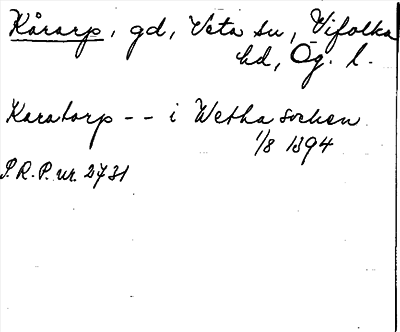 Kårarp, gd, Veta sn, Vifolka
hd, Ög. l.
Karatorp -- i Wetha socken
1/8 1394
S.R.P. nr. 2731